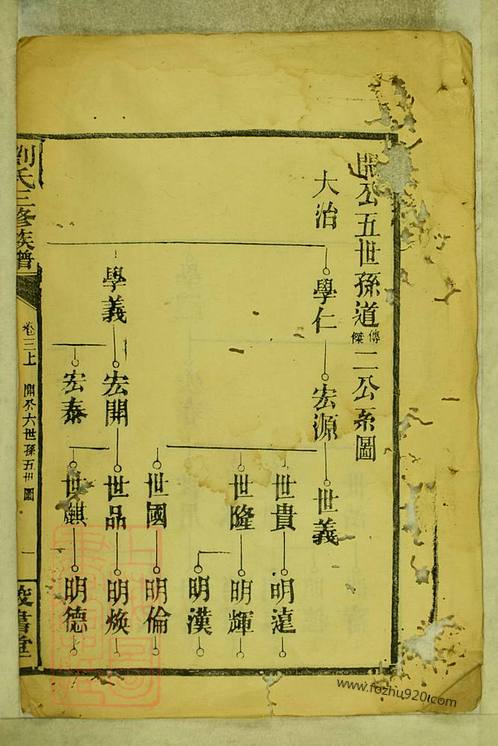 開公五世孫道傳傑二公系圖
大治
學仁
宏源
世義
世貴
明達
世隆
明輝
明漢
世國
明倫
學義
宏開
世品
明煥
宏泰
世麒
明德
劉氏三修族譜
卷三上
開公六世孫五世圖
一
www.fozhu920.com